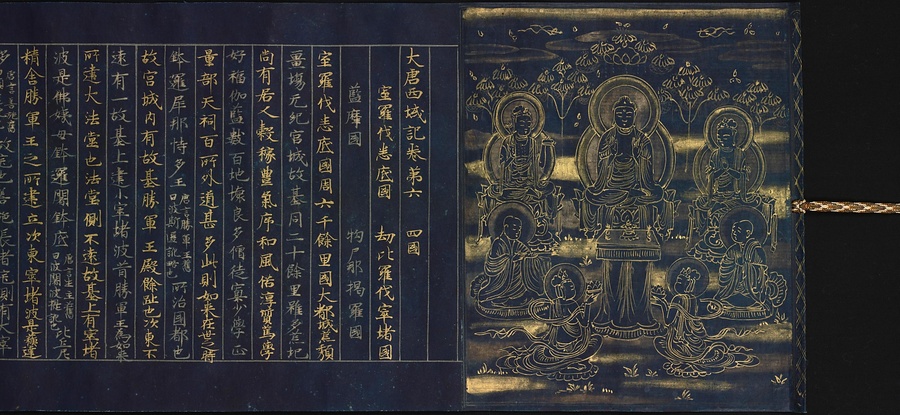 大唐西域記卷第六　四國
室羅伐悉底國　劫比羅伐窣堵國
藍摩國　拘尸那揭羅國
室羅伐悉底國周六千餘里國大都城荒頓
畺場无紀宮城故基周二十餘里雖多荒圮
尚有居人穀稼豐氣序和風俗淳質篤學
好福伽藍數百圮壞良多僧徒寡少學正
量部天祠百所外道甚多此則如來在世之時
鉢邏犀那恃多王唐言勝軍王舊曰波斯匿訛略也所治國都也
故宮城内有故基勝軍王殿餘趾也次東不
遠有一故基上建小窣堵波昔勝軍王為如來
所建大法堂也法堂側不遠故基上有窣堵
波是佛姨母鉢邏闍鉢底唐言生主舊曰波闍波提訛也比丘尼
精舍勝軍王之所建立次東窣堵波是蘇達